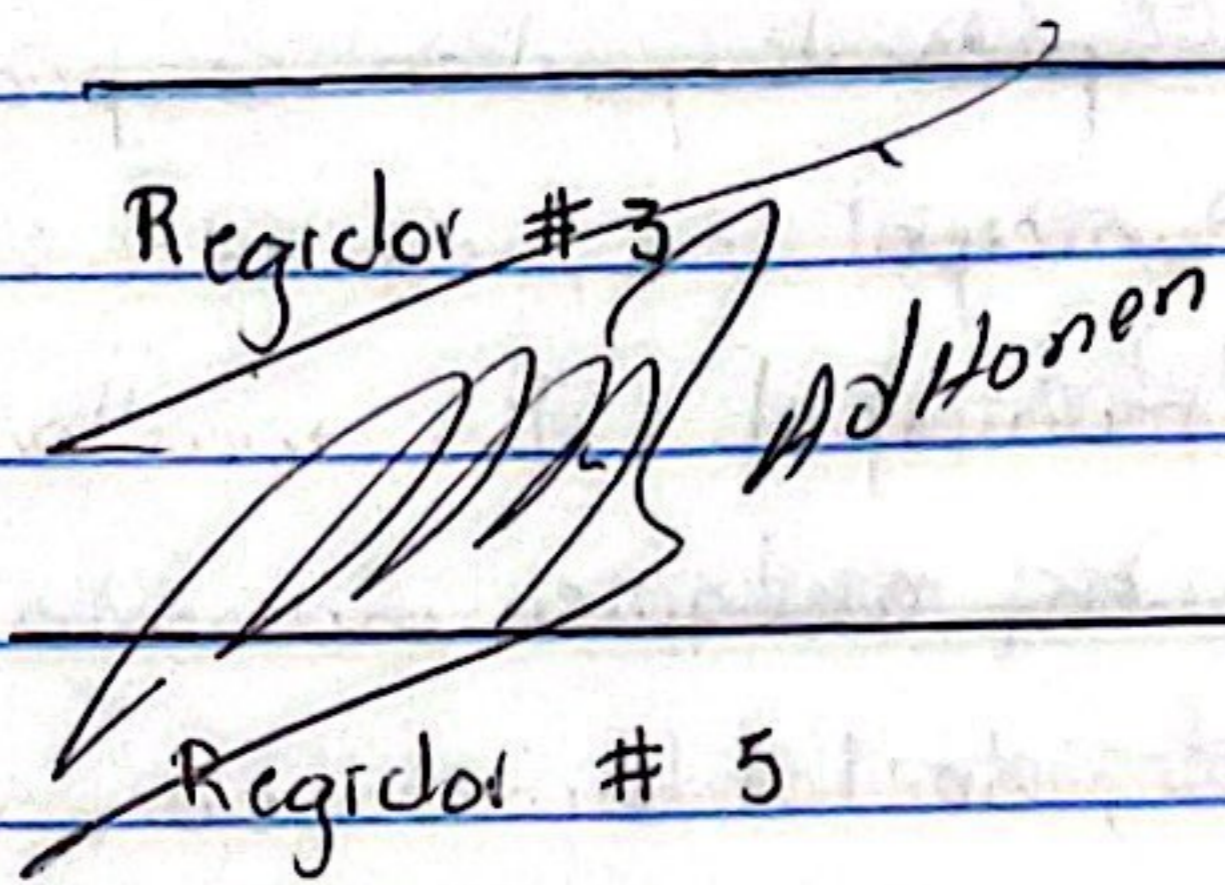 Regidor # 3
AdHonen
Regidor # 5